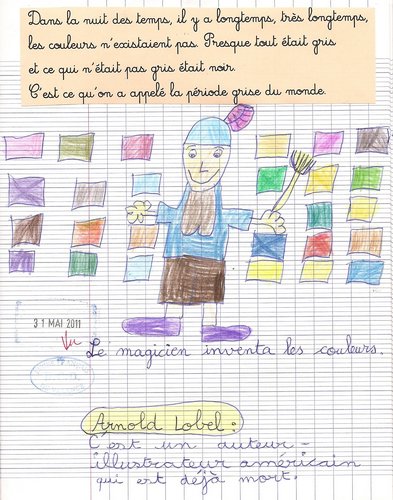 Dans la nuit des temps, il y a longtemps, très longtemps,
les couleurs n'existaient pas. Presque tout était gris
et ce qui n'était pas gris était noir.
C'est ce qu'on a appelé la période grise du monde.
31 MAI 2011
Vu
Le magicien inventa les couleurs.
Arnold Lobel :
C'est un auteur-
illustrateur américain
qui est déjà mort.